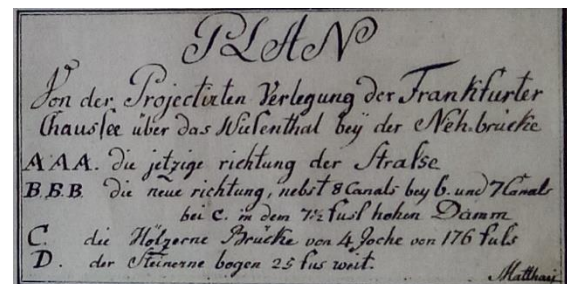 PLAN
Von der Projectirten Verlegung der Franckfurter
Chausſée über das Wiesenthal beÿ der Neh.brücke
A A A. die jetzige richtung der Straſse
B.B.B. die neüe richtung, nebst 8 Canals bey b. und 7 Canals
bei c. in dem 7½ fusſ hohen Damm
C. die Höltzerne Brücke von 4 Joche von 176 fuſs
D. der Steinerne bogen 25 fus weit.
Matthaei